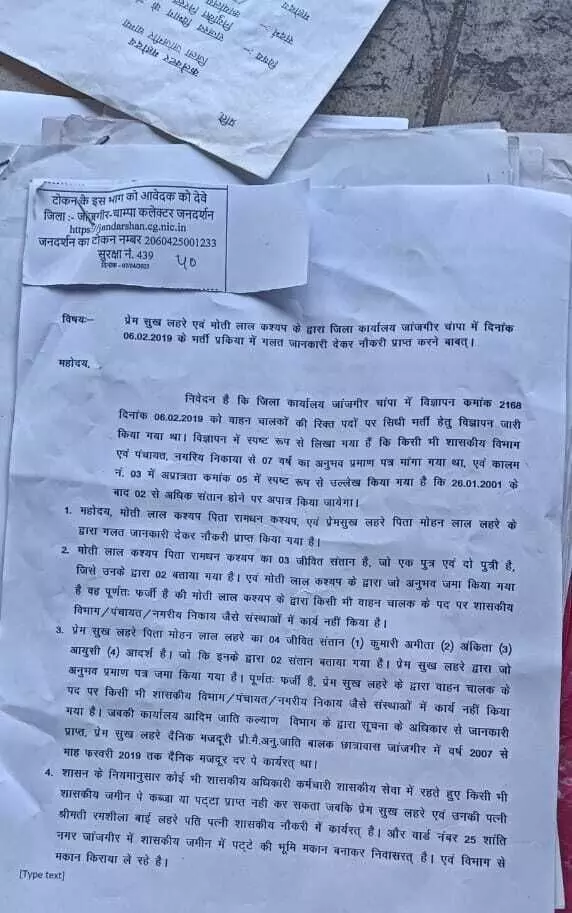 कलेक्टर महोदय
जिला जांजगीर चाम्पा
विषय :-
प्रति,
टोकन के इस भाग को आवेदक को देवे
जिला :- जांजगीर-चाम्पा कलेक्टर जनदर्शन
https://jandarshan.cg.nic.in
जनदर्शन का टोकन नम्बर 2060425001233
सुरक्षा नं. 439
40
विषयः- प्रेम सुख लहरे एवं मोती लाल कश्यप के द्वारा जिला कार्यालय जांजगीर चांपा में दिनांक
06.02.2019 के भर्ती प्रकिया में गलत जानकारी देकर नौकरी प्राप्त करने बाबत्।
महोदय,
निवेदन है कि जिला कार्यालय जांजगीर चांपा में विज्ञापन कमांक 2168
दिनांक 06.02.2019 को वाहन चालकों की रिक्त पदों पर सिधी भर्ती हेतु विज्ञापन जारी
किया गया था। विज्ञापन में स्पष्ट रूप से लिखा गया हैं कि किसी भी शासकीय विभाग
एवं पंचायत, नगरिय निकाया से 07 वर्ष का अनुभव प्रमाण पत्र मांगा गया था, एवं कालम
नं. 03 में अप्रात्रता कमांक 05 में स्पष्ट रूप से उल्लेख किया गया है कि 26.01.2001 के
बाद 02 से अधिक संतान होने पर अपात्र किया जायेगा।
1. महोदय, मोती लाल कश्यप पिता रामधन कश्यप, एवं प्रेमसुख लहरे पिता मोहन लाल लहरे के
द्वारा गलत जानकारी देकर नौकरी प्राप्त किया गया है।
2. मोती लाल कश्यप पिता रामधन कश्यप का 03 जीवित संतान है, जो एक पुत्र एवं दो पुत्री है,
जिसे उनके द्वारा 02 बताया गया है। एवं मोती लाल कश्यप के द्वारा जो अनुभव जमा किया गया
है वह पूर्णतः फर्जी है की मोती लाल कश्यप के द्वारा किसी भी वाहन चालक के पद पर शासकीय
विभाग/पंचायत/नगरीय निकाय जैसे संस्थाओं में कार्य नहीं किया है।
3. प्रेम सुख लहरे पिता मोहन लाल लहरे का 04 जीवित संतान (1) कुमारी अमीता (2) अंकिता (3)
आयुसी (4) आदर्श है। जो कि इनके द्वारा 02 संतान बताया गया है। प्रेम सुख लहरे द्वारा जो
अनुभव प्रमाण पत्र जमा किया गया है। पूर्णतः फर्जी है, प्रेम सुख लहरे के द्वारा वाहन चालक के
पद पर किसी भी शासकीय विभाग/पंचायत/नगरीय निकाय जैसे संस्थाओं में कार्य नहीं किया
गया है। जबकी कार्यालय आदिम जाति कल्याण विभाग के द्वारा सूचना के अधिकार से जानकारी
प्राप्त, प्रेम सुख लहरे दैनिक मजदूरी प्री.मै.अनु.जाति बालक छात्रावास जांजगीर में वर्ष 2007 से
माह फरवरी 2019 तक दैनिक मजदूर दर पे कार्यरत् था।
4. शासन के नियमानुसार कोई भी शासकीय अधिकारी कर्मचारी शासकीय सेवा में रहते हुए किसी भी
शासकीय जमीन पे कब्जा या पट्टा प्राप्त नही कर सकता जबकि प्रेम सुख लहरे एवं उनकी पत्नी
श्रीमती रमशीला बाई लहरे पति पत्नी शासकीय नौकरी में कार्यरत् है। और वार्ड नंबर 25 शांति
नगर जांजगीर में शासकीय जमीन में पट्टे की भूमि मकान बनाकर निवासरत् है। एवं विभाग से
मकान किराया ले रहे है।
[Type text]